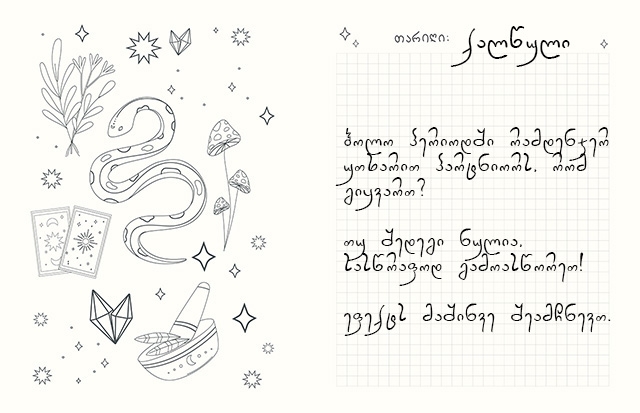 თარიღი: ქალწული
ბოლო პერიოდში რამდენჯერ
უთხარით პარტნიორს, რომ
გიყვართ?
თუ შედეგი ნულია,
სასწრაფოდ გამოასწორეთ!
ეფექტს მაშინვე შეამჩნევთ.